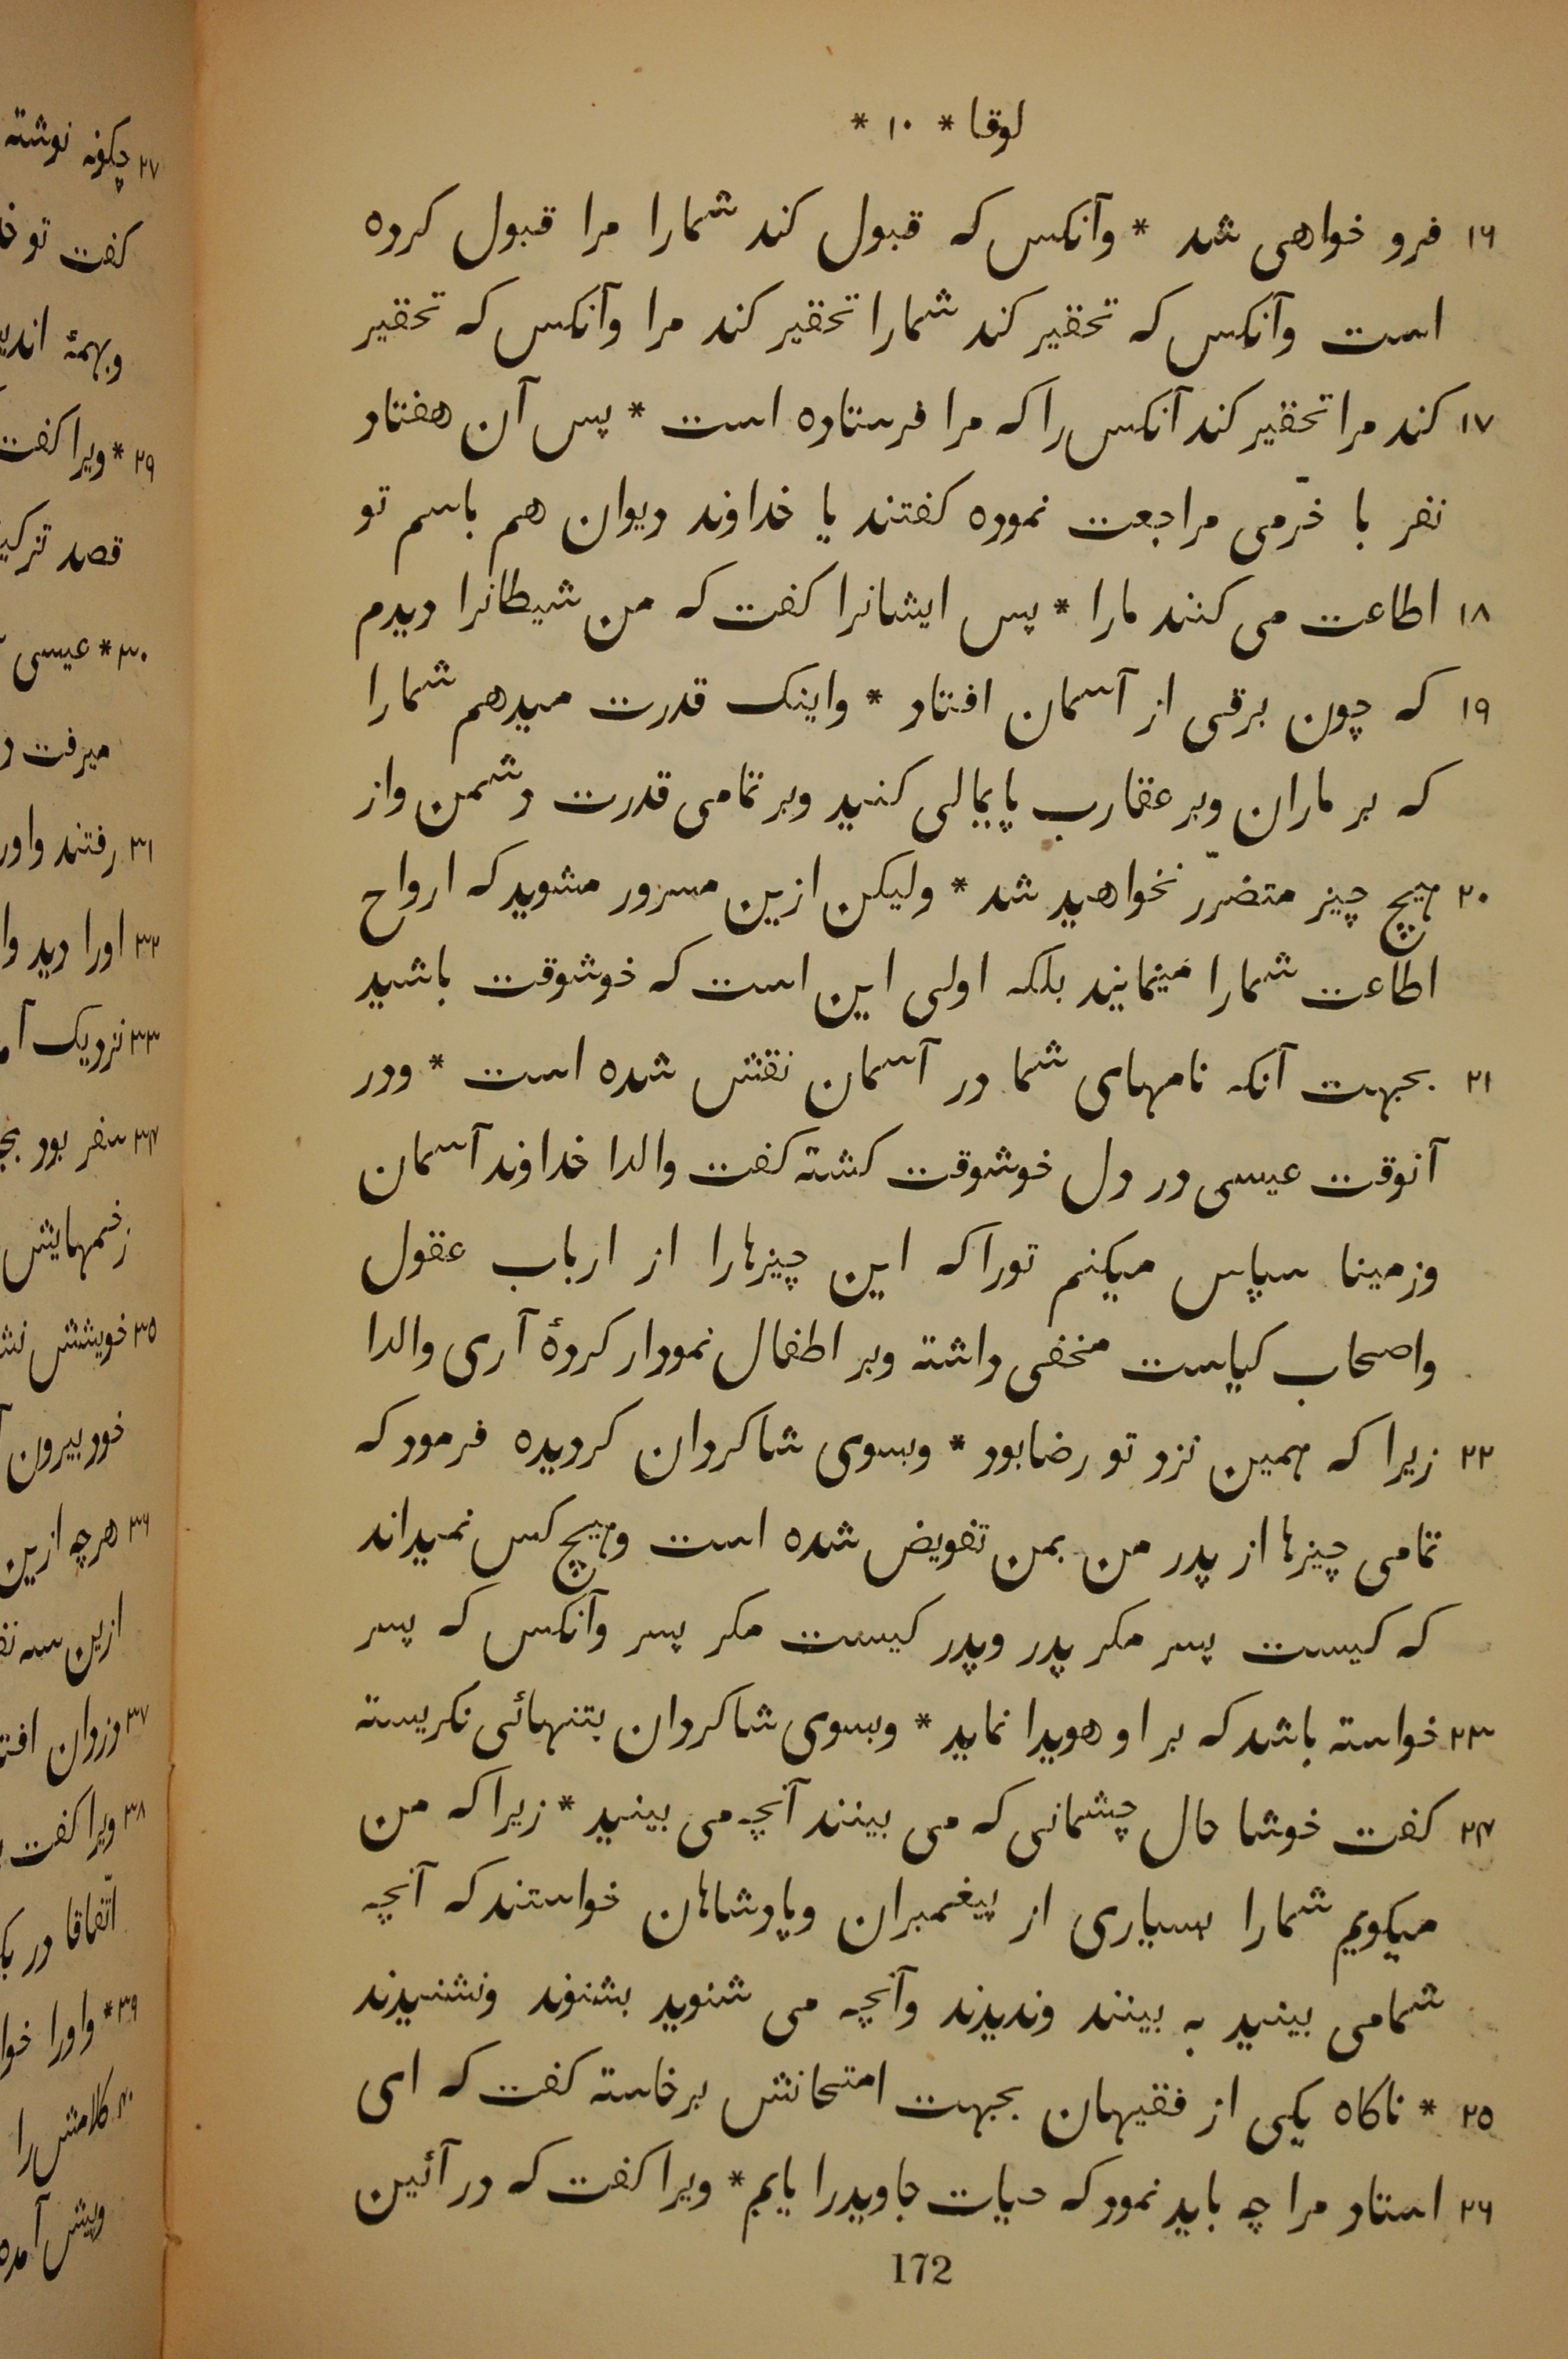 لوقا * ۱۰ *
۱۶ فرو خواهی شد * وآنکس که قبول کند شمارا مرا قبول کرده
است وآنکس که تحقیر کند شمارا تحقیر کند مرا وآنکس که تحقیر
۱۷ کند مرا تحقیر کند آنکس را که مرا فرستاده است * پس آن هفتاد
نفر با خرّمی مراجعت نموده کفتند یا خداوند دیوان هم باسم تو
۱۸ اطاعت می کنند مارا * پس ایشانرا کفت که من شیطانرا دیدم
۱۹ که چون برقی از آسمان افتاد * واینک قدرت میدهم شمارا
که بر ماران وبر عقارب پایمالی کنید وبر تمامی قدرت دشمن واز
۲۰ هیچ چیز متضرّر نخواهید شد * ولیکن ازین مسرور مشوید که ارواح
اطاعت شمارا مینمایند بلکه اولی این است که خوشوقت باشید
۲۱ بجهت آنکه نامهای شما در آسمان نقش شده است * ودر
آنوقت عیسی در دل خوشوقت کشته کفت والدا خداوند آسمان
وزمینا سپاس میکنم توراکه این چیزهارا از ارباب عقول
واصحاب کیاست مخفی داشته وبر اطفال نمودار کردهٔ آری والدا
۲۲ زیرا که همین نزد تو رضا بود * وبسوی شاکردان کردیده فرمود که
تمامی چیزها از پدر من بمن تفویض شده است وهیچ کس نمیداند
که کیست پسر مکر پدر وپدر کیست مکر پسر وآنکس که پسر
۲۳ خواسته باشد که بر او هویدا نماید * وبسوی شاکردان بتنهائی نکریسته
۲۴ کفت خوشا حال چشمانی که می بینند آنچه می بینید * زیرا که من
میکویم شمارا بسیاری از پیغمبران وپادشاهان خواستند که آنچه
شما می بینید به بینند وندیدند وآنچه می شنوید بشنوند ونشنیدند
۲۵ * ناکاه یکی از فقیهان بجهت امتحانش برخاسته کفت که ای
۲۶ استاد مرا چه باید نمود که حیات جاویدرا یابم * ویرا کفت که در آئین
172
۲۷ چکونه نوشته
کفت تو
وبهمهٔ
۲۹ * ویرا کفت
قصد
۳۰ * عیسی
میرفت
۳۱ رفتند
۳۲ اورا دید
۳۳ نزدیک
۳۴ سفر بود
زخمهایش
۳۵ خویشش
خود بیرون
۳۶ هرچه ازین
ازین سه
۳۷ دزدان
۳۸ ویرا کفت
اتّفاقا در
۳۹ * واورا
۴۰ کلامش را
وپیش